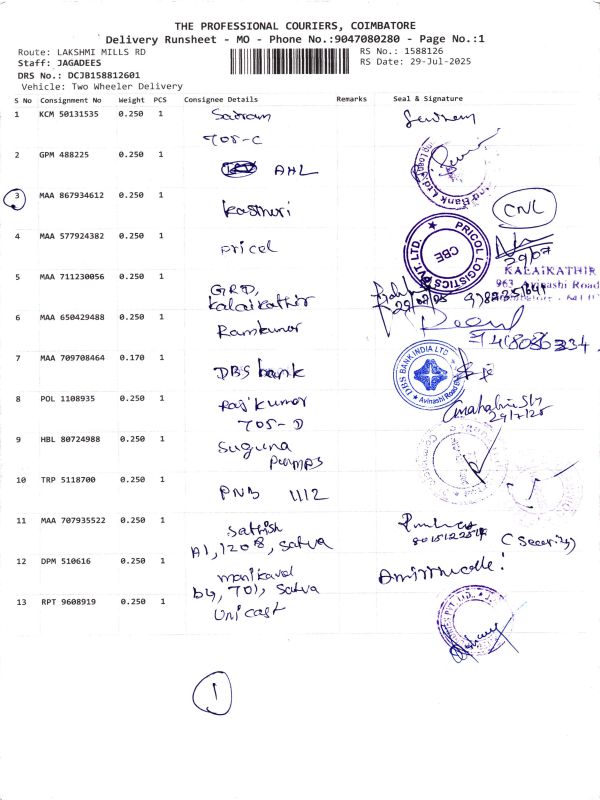 THE PROFESSIONAL COURIERS, COIMBATORE
Delivery Runsheet - MO - Phone No.:9047080280 - Page No.:1
Route: LAKSHMI MILLS RD
RS No.: 1588126
Staff: JAGADEES
RS Date: 29-Jul-2025
DRS No.: DCJB158812601
Vehicle: Two Wheeler Delivery
S No Consignment No Weight PCS Consignee Details Remarks Seal & Signature
1 KCM 50131535 0.250 1 Sairam
705-C
2 GPM 488225 0.250 1 AHL
3 MAA 867934612 0.250 1 Kasthuri CNL
4 MAA 577924382 0.250 1 Pricol PRICOL LOGISTICS PVT. LTD. CBE
29/07
KALAIKATHIR
963, Avinashi Road
5 MAA 711230056 0.250 1 GRD,
Kalaikathir
6 MAA 650429488 0.250 1 Ramkumar
7 MAA 709708464 0.170 1 DBS bank DBS BANK INDIA LTD Avinashi Road
8 POL 1108935 0.250 1 Rajkumar
705-D
29/7/25
9 HBL 80724988 0.250 1 Suguna
Pumps
10 TRP 5118700 0.250 1 PNB 1112
11 MAA 707935522 0.250 1 Sathish
A1, 1208, Satva
(Security)
12 DPM 510616 0.250 1 Manikavel
B4, 701, Satva
13 RPT 9608919 0.250 1 Unicast
1